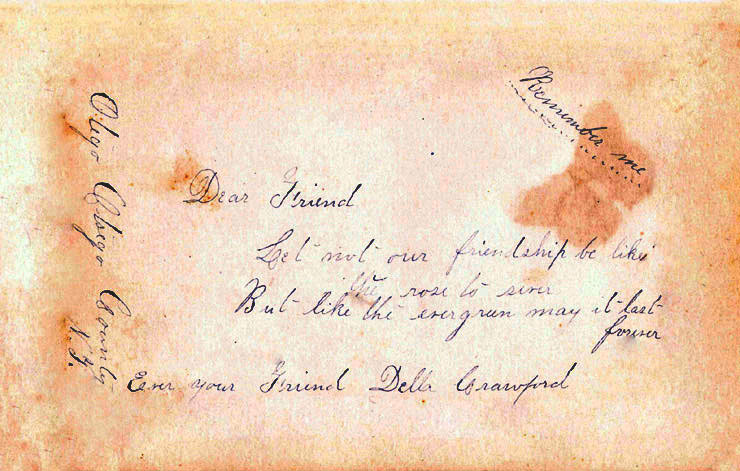 Remember me
Dear Friend
Let not our friendship be like
the rose to sever
But like the evergreen may it last
forever
Ever your Friend Della Crawford
Otego Otsego County
N.Y.